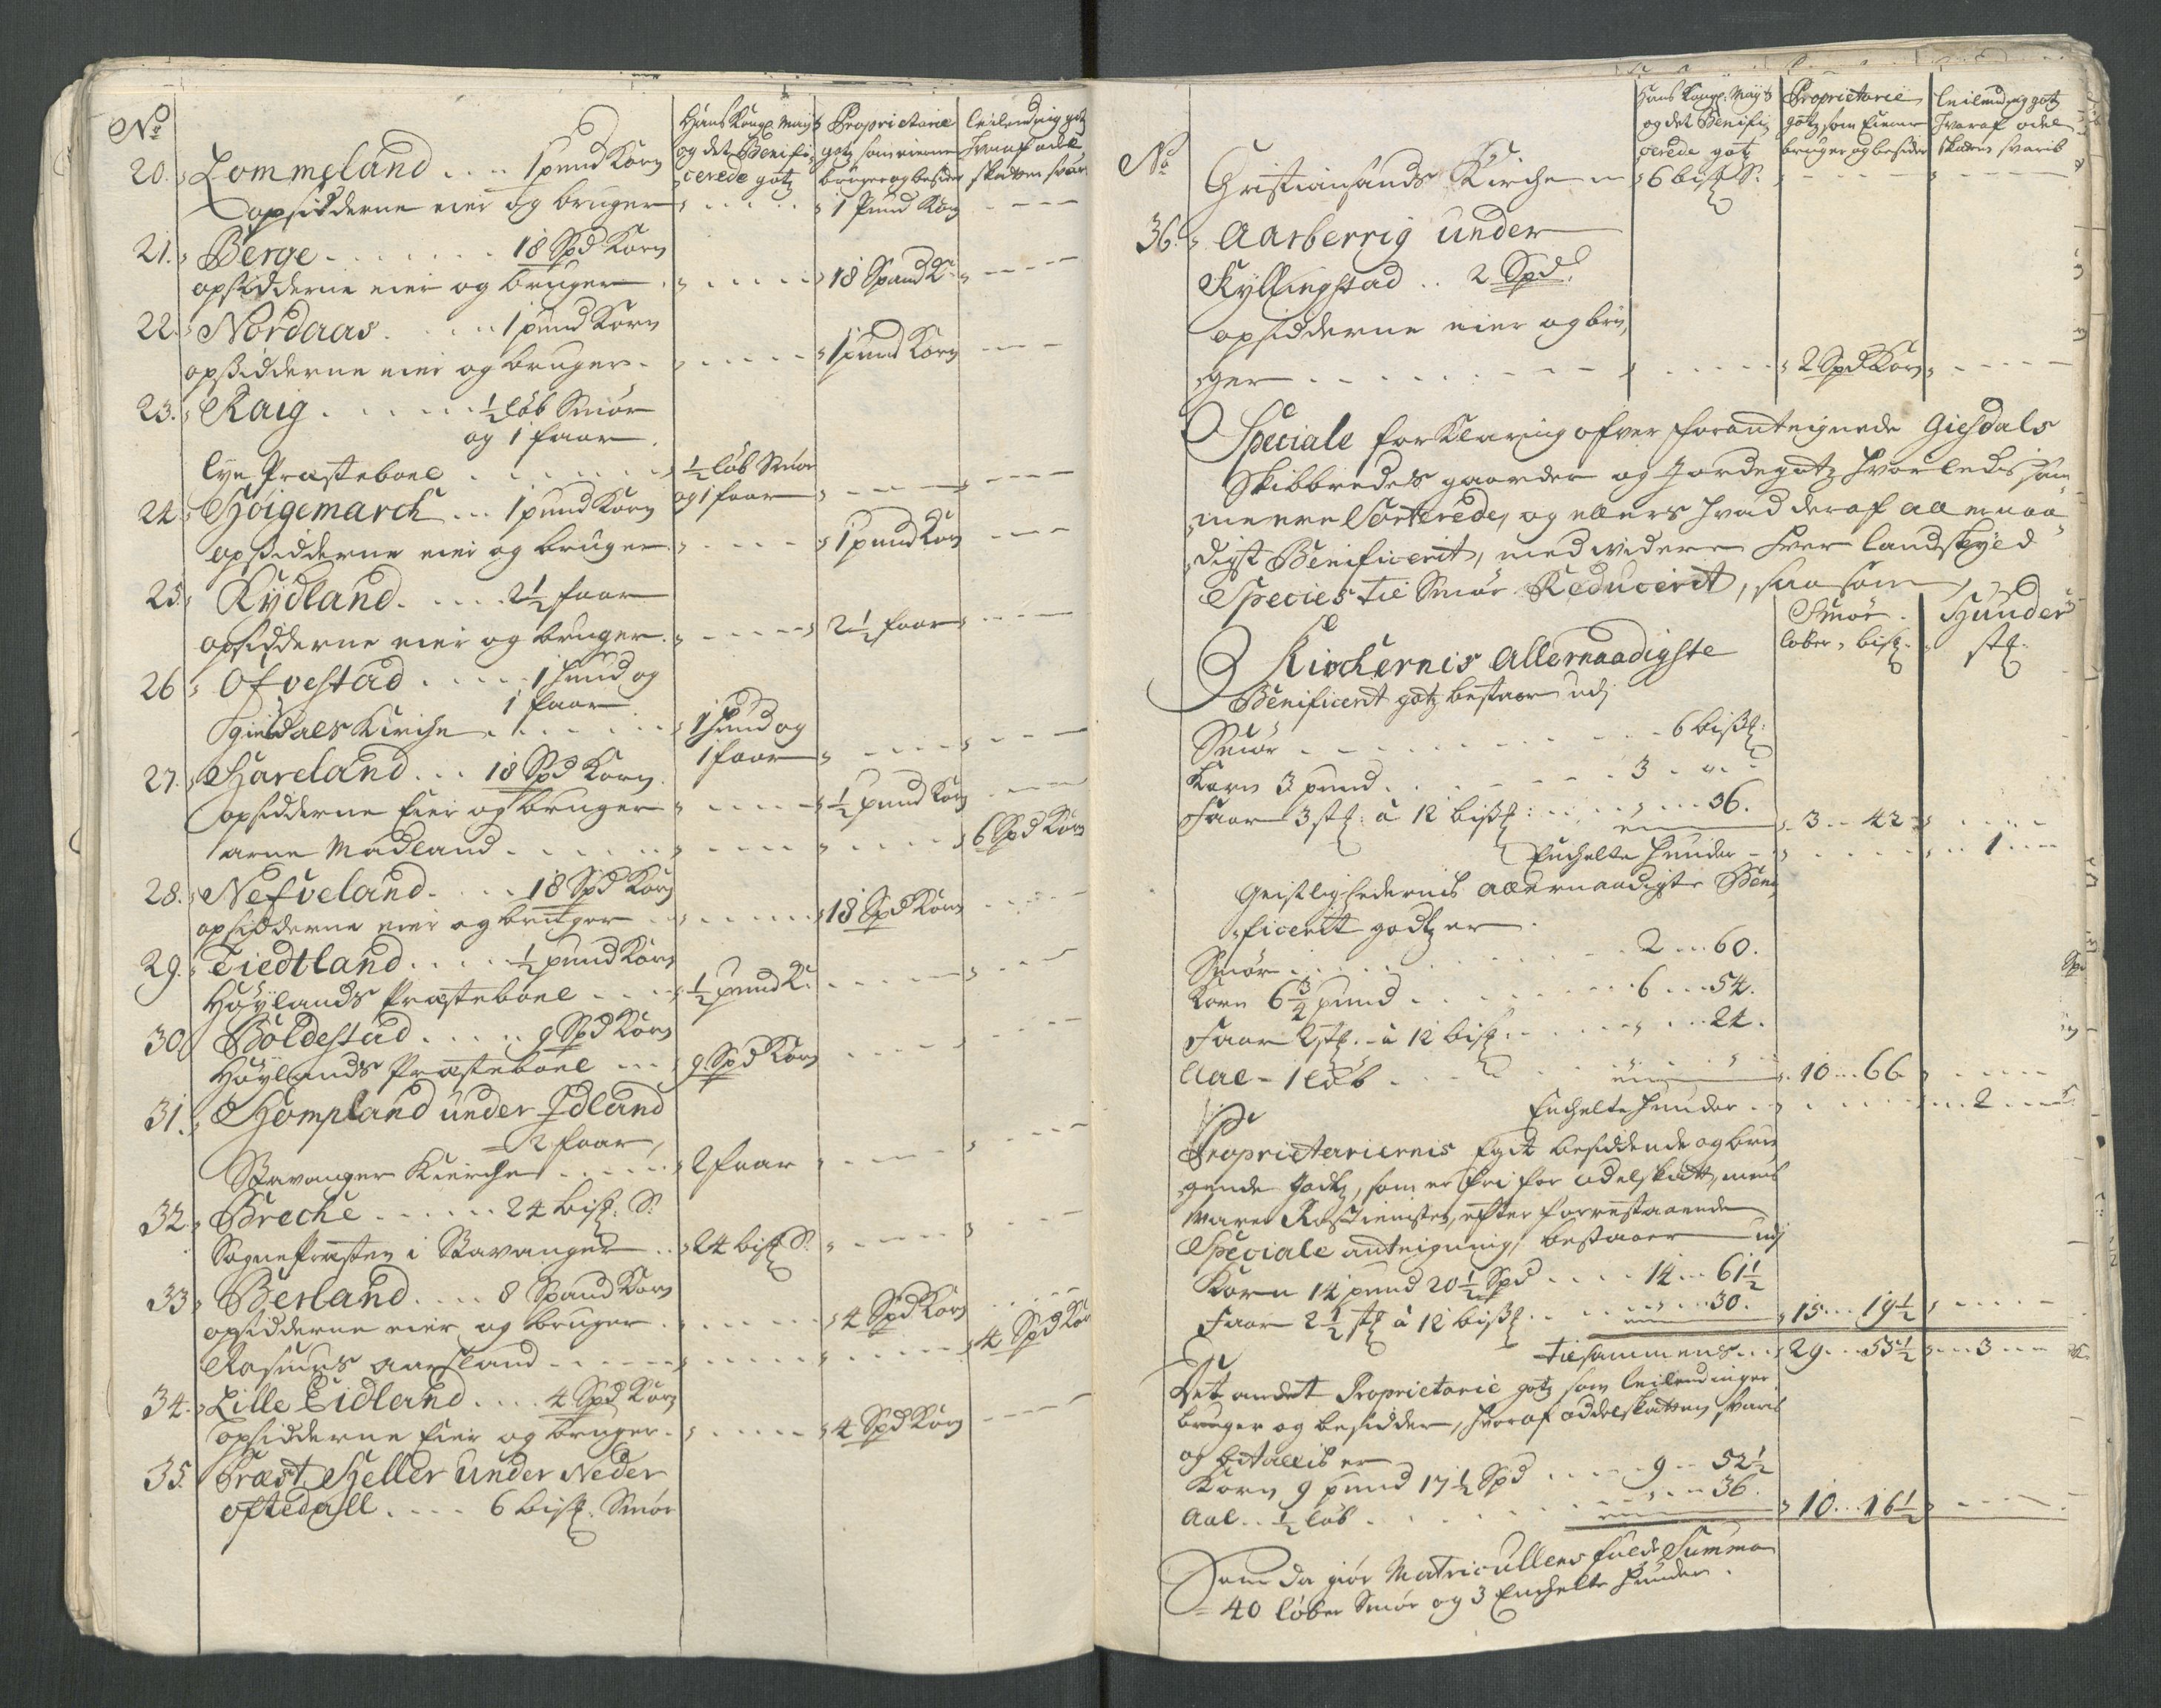 No
Hans Kongl. Mayts
og det Benifi
cerede gotz
Proprietarie
gotz som eierne
bruger og besider
leilending gotz
hvoraf odel
skatten svar
20. Lommeland .... 1 pund Korn
opsidderne eier og bruger ..... 1 Pund Korn ----
21. Berge ....... 18 Spd Korn
opsidderne eier og bruger ..... 18 Spand K. ----
22. Nordaas ..... 1 pund Korn
opsidderne eier og bruger ..... 1 pund Korn ---
23. Raig ...... ½ løb Smør
og 1 faar
Lye Præsteboel ...... ½ løb Smør
og 1 faar ---- ----
24. Høigemarch ... 1 pund Korn
opsidderne eier og bruger ..... 1 pund Korn ---
25. Rydland ..... 2½ faar
opsidderne eier og bruger ..... 2½ faar ----
26. Ofvestad ..... 1 hund og
1 faar
Giesdals Kirche ...... 1 hund og
1 faar ---- ---
27. Hareland ... 18 Spd Korn
opsidderne Eier og bruger ..... ½ pund Korn ----
Arne Madland ..... ---- ..... 6 Spd Korn
28. Nefveland .... 18 Spd Korn
opsidderne eier og bruger ..... 18 Spd Korn -----
29. Tiedtland ..... ½ pund Korn
Høylands Præsteboel .... ½ pund K. ----- ---
30. Boldestad ..... 9 Spd Korn
Høylands Præsteboel ... 9 Spd Korn ---- ----
31. Hompland under Idland
2 faar
Stavanger Kierche ...... 2 faar ---- ----
32. Breche ...... 24 bisp. S.
Sogne Præsten i Stavanger .. 24 bisp S. ---- ----
33. Berland .... 8 Spand Korn
opsidderne eier og bruger ..... 4 Spd Korn ....
Rasmus Aarsland ------ ..... 4 Spd Kor
34. Lille Eidland .... 4 Spd Korn
opsidderne Eier og bruger ..... 4 Spd Korn ----
35. Præst Heller under Neder
oftedall .... 6 bisp. Smør
No
Hans Kongl. Mayts
og det Benifi
cerede gotz
Proprietarie
gotz som Eierne
bruger og besider
leilending gotz
hvoraf odel
skatten svaris
Christiansands Kirche 6 bisp S. ---- ----
36. Aarberrig under
Kyllingstad .. 2 Spd.
opsidderne eier og bru
ger ........ 2 Spd Korn -----
Speciale forklaring ofver foranteignede Giesdals
Skibbredes gaarder og Jordegotz hvorledis sam
me ere Sorterede, og ellers hvad deraf allernaa
digst Benificerit, med videre hver landskyld
Species til Smør Reducerit, saa som
Smør
løber, bisp.
Hunder
stk.
Kirchernis Allernaadigste
Benificerit gotz bestaar udj
Smør .......... 6 bisp:
Korn 3 pund ...... 3 . "
Faar 3 stk: à 12 bisp: ..... 36. 3 .. 42 .....
Enchelte hunder ..... 1 ....
Geistlighedernis allernaadigste Beni
ficerit godtz er
Smør ........ 2 ... 60.
Korn 6¾ pund ........ 6 ... 54.
Faar 2 stk. à 12 bisp. ...... 24.
Aal - 1 løb ..... 10 ... 66 .....
Enchelte hunder ..... 2 ....
Proprietariernis Eget besiddende og bru
gende Godtz, som er fri for odelskatt, mens
svarer Ros Tienisten, efter forrestaaende
Speciale anteigning, bestaaer udj
Korn 14 pund 20½ Spd .... 14 ... 61½
Faar 2½ stk à 12 bisp ..... 30. 15 ... 19½ .....
tilsammens ... 29 ... 55½ ... 3 ...
Det andet Proprietarie gotz som leilendinger
bruger og besidder, hvoraf oddelskatten svaris
og betallis er
Korn 9 pund 17½ Spd ..... 9 .. 52½
Aal .. ½ løb ........ 36. 10 ... 16½ ....
Som da giør Matricullens fulde Summa
40 løber Smør og 3 Enchelte hunder.